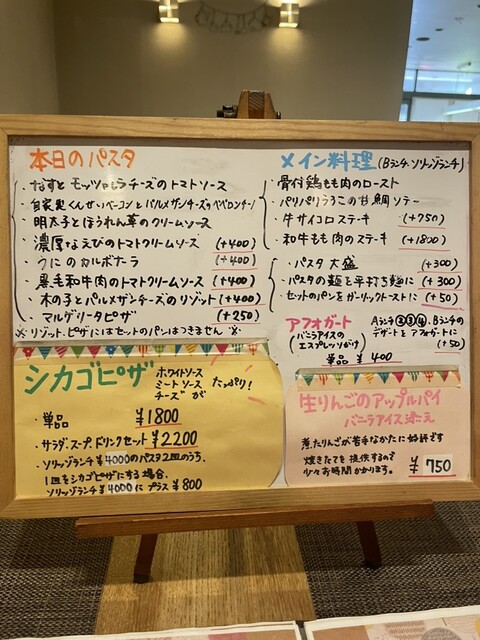 本日のパスタ
・なすとモッツァレラチーズのトマトソース
・自家製くんせいベーコンとパルメザンチーズのペペロンチーノ
・明太子とほうれん草のクリームソース
・濃厚なえびのトマトクリームソース (+400)
・うにのカルボナーラ (+400)
・黒毛和牛肉のトマトクリームソース (+400)
・木の子とパルメザンチーズのリゾット (+400)
・マルゲリータピザ (+250)
※リゾット、ピザにはセットのパンはつきません※
メイン料理 (Bランチ、ソリッゾランチ)
・骨付鶏もも肉のロースト
・パリパリうろこの甘鯛ソテー
・牛サイコロステーキ (+750)
・和牛もも肉のステーキ (+1800)
・パスタ大盛 (+300)
・パスタの麺を平打ち麺に (+300)
・セットのパンをガーリックトーストに (+50)
アフォガート
(バニラアイスの
エスプレッソがけ)
Aランチ②③④、Bランチの
デザートをアフォガートに
(+50)
単品 ¥400
シカゴピザ
ホワイトソース
ミートソース
チーズが
たっぷり!
・単品 ¥1800
・サラダ、スープ、ドリンクセット ¥2200
・ソリッゾランチ¥4000のパスタ2皿のうち、
1皿をシカゴピザにする場合、
ソリッゾランチ¥4000にプラス¥800
生りんごのアップルパイ
バニラアイス添え
煮たりんごが苦手なかたに好評です
焼きたてを提供するので
少々お時間かかります。
¥750